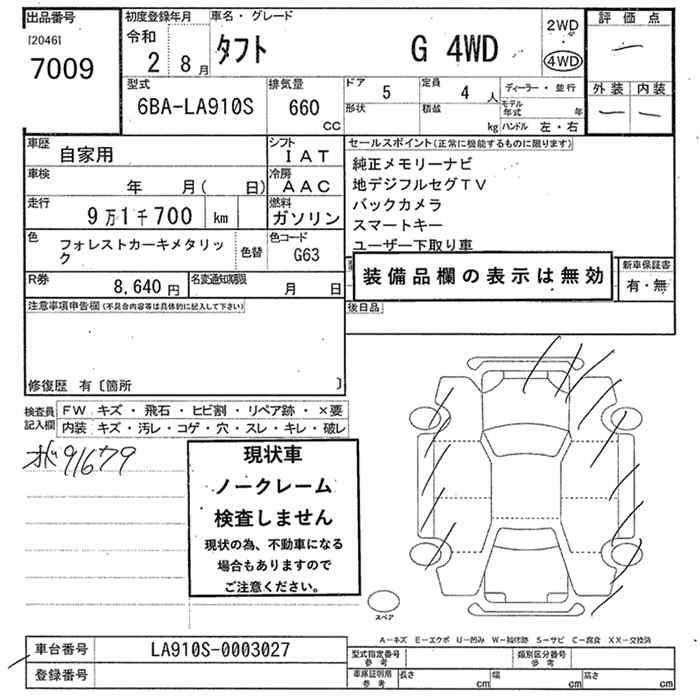 出品番号
[2046]
7009
初度登録年月
令和
2 8月
車名・グレード
タフト G 4WD
2WD
4WD
評価点
外装 内装
型式
6BA-LA910S
排気量
660
CC
ドア 5
定員 4人
形状
積載 kg
ディーラー・並行
モデル年式 年
ハンドル 左・右
車歴 自家用
シフト IAT
車検 年 月( 日)
冷房 AAC
走行 9万1千700 km
燃料 ガソリン
色 フォレストカーキメタリック
色替
色コード G63
R券 8,640円
名変通知期限 月 日
セールスポイント(正常に機能するものに限ります)
純正メモリーナビ
地デジフルセグTV
バックカメラ
スマートキー
ユーザー下取り車
装備品欄の表示は無効
新車保証書
有・無
後日品
注意事項申告欄(不具合内容等は具体的に記入して下さい)
修復歴 有〔箇所 〕
検査員記入欄
FW キズ・飛石・ヒビ割・リペア跡・×要
内装 キズ・汚レ・コゲ・穴・スレ・キレ・破レ
91679
現状車
ノークレーム
検査しません
現状の為、不動車になる
場合もありますので
ご注意ください。
スペア
A-キズ E-エクボ U-凹み W-補修跡 S-サビ C-腐食 XX-交換済
車台番号 LA910S-0003027
登録番号
型式指定番号
参考
類別区分番号
参考
車庫証明用
参考
長さ cm
幅 cm
高さ cm